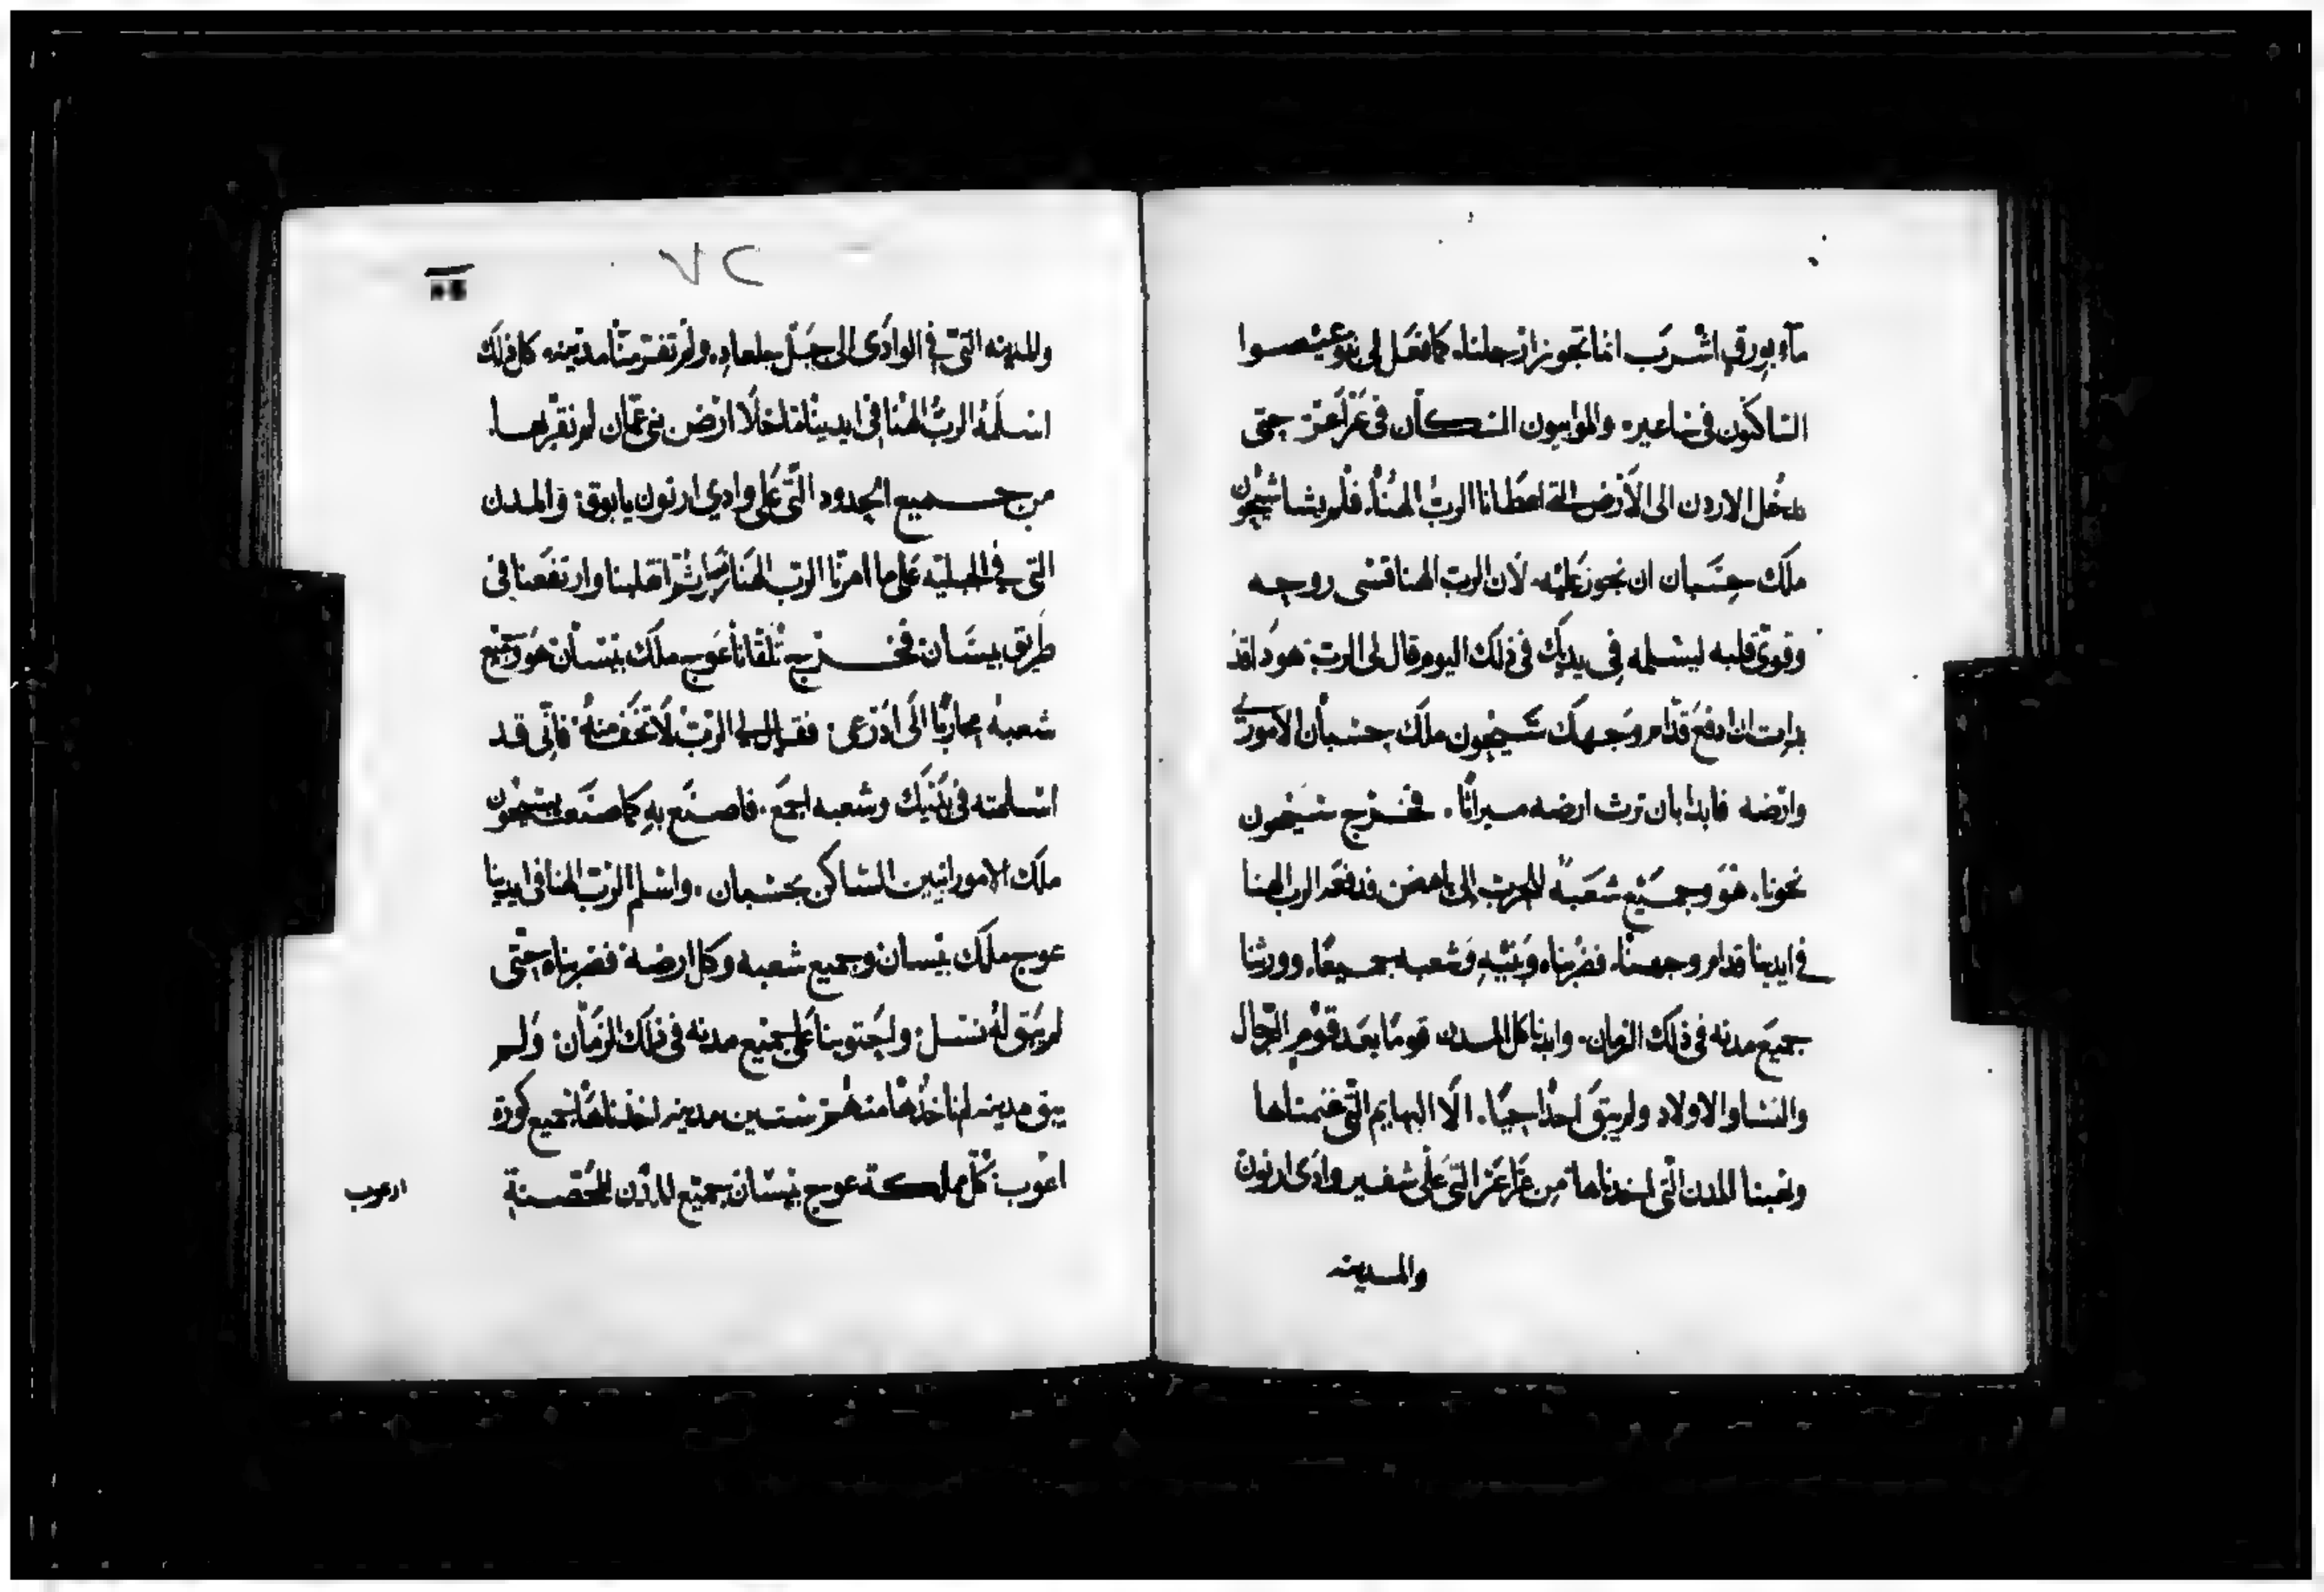 مآء بورق اشرب انما تجوز ارجلنا. كما فعل لى بنو عيصوا
الساكنون فى ساعير. والموابيون السكان فى عراعز حتى
ندخل الاردن الى الأرض التى اعطانا الرب الهنا. فلم يشا شيحون
ملك حسبان ان نجوز عليه. لان الرب الهنا قسى روحه
وقوى قلبه ليسلمه فى يديك فى ذلك اليوم وقال لى الرب هودا قد
بدات ان ادفع قدام وجهك شيحون ملك حسبان الامورى
وارضه فابدا بان ترث ارضه ميراثا. فخرج سيحون
نحونا. هو وجميع شعبه للحرب الى ياهص فدفعه الرب الهنا
فى ايدينا قدام وجهنا. فضربناه وبنيه وشعبه جميعا. وورثنا
جميع مدنه فى ذلك الزمان. وابدنا كل المدن قوما بعد قوم الرجال
والنسا والاولاد ولم يبق احدا حيا. الا البهايم التى غنمناها
ونهبنا المدن التى اخدناها من عراعز التى على شفير وادى ارنون
والمدينه
٧٢
والمدينه التى فى الوادى الى جبل جلعاد. ولم تفتر منا مدينه كل ذلك
اسلمه الرب الهنا فى ايدينا ما خلا ارض بنى عمان لم نقربها.
من جميع الحدود التى على وادي ارنون يابوق والمدن
التى فى الجبليه على ما امرنا الرب الهنا ثم انقلبنا وارتفعنا فى
طريق بيسان فخرج تلقانا عوج ملك بيسان هو وجميع
شعبه محاربا الى ادرعى فقال الرب لا تخف منه فانى قد
اسلمته فى يديك وشعبه اجمع. فاصنع به كما صنعت بسيحون
ملك الامورانيين الساكن بحسبان. واسلم الرب الهنا فى ايدينا
عوج ملك بيسان وجميع شعبه وكل ارضه فضربناه حتى
لم يبق له نسل واحتوينا على جميع مدنه فى ذلك الزمان ولم
يبق مدينه لم ناخذها منهم ستين مدينه اخذناها جميع كورة
اعوب كل مملكة عوج بيسان جميع المدن المحصنة
ارعوب